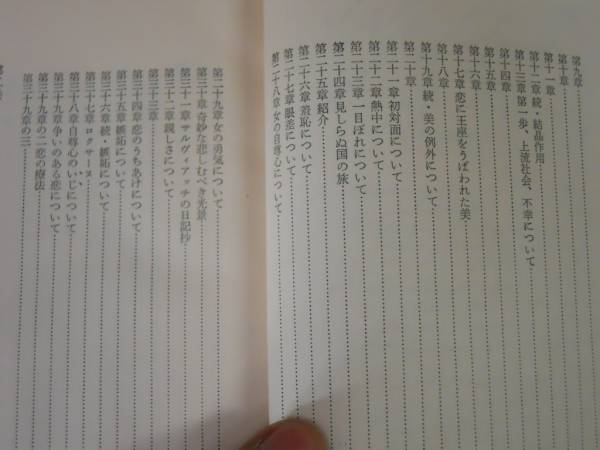 第九章
第十章
第十一章
第十二章 続・結晶作用
第十三章 第一歩、上流社会、不幸について
第十四章
第十五章
第十六章
第十七章 恋に王座をうばわれた美
第十八章
第十九章 続・美の例外について
第二十章
第二十一章 初対面について
第二十二章 熱中について
第二十三章 一目ぼれについて
第二十四章 見しらぬ国の旅
第二十五章 紹介
第二十六章 羞恥について
第二十七章 眼差について
第二十八章 女の自尊心について
第二十九章 女の勇気について
第三十章 奇妙な悲しむべき光景
第三十一章 サルヴィアッチの日記抄
第三十二章 親しさについて
第三十三章
第三十四章 恋のうちあけについて
第三十五章 嫉妬について
第三十六章 続・嫉妬について
第三十七章 ロクサーヌ
第三十八章 自尊心のいじについて
第三十九章 争いのある恋について
第三十九章の二 恋の療法
第三十九章の三